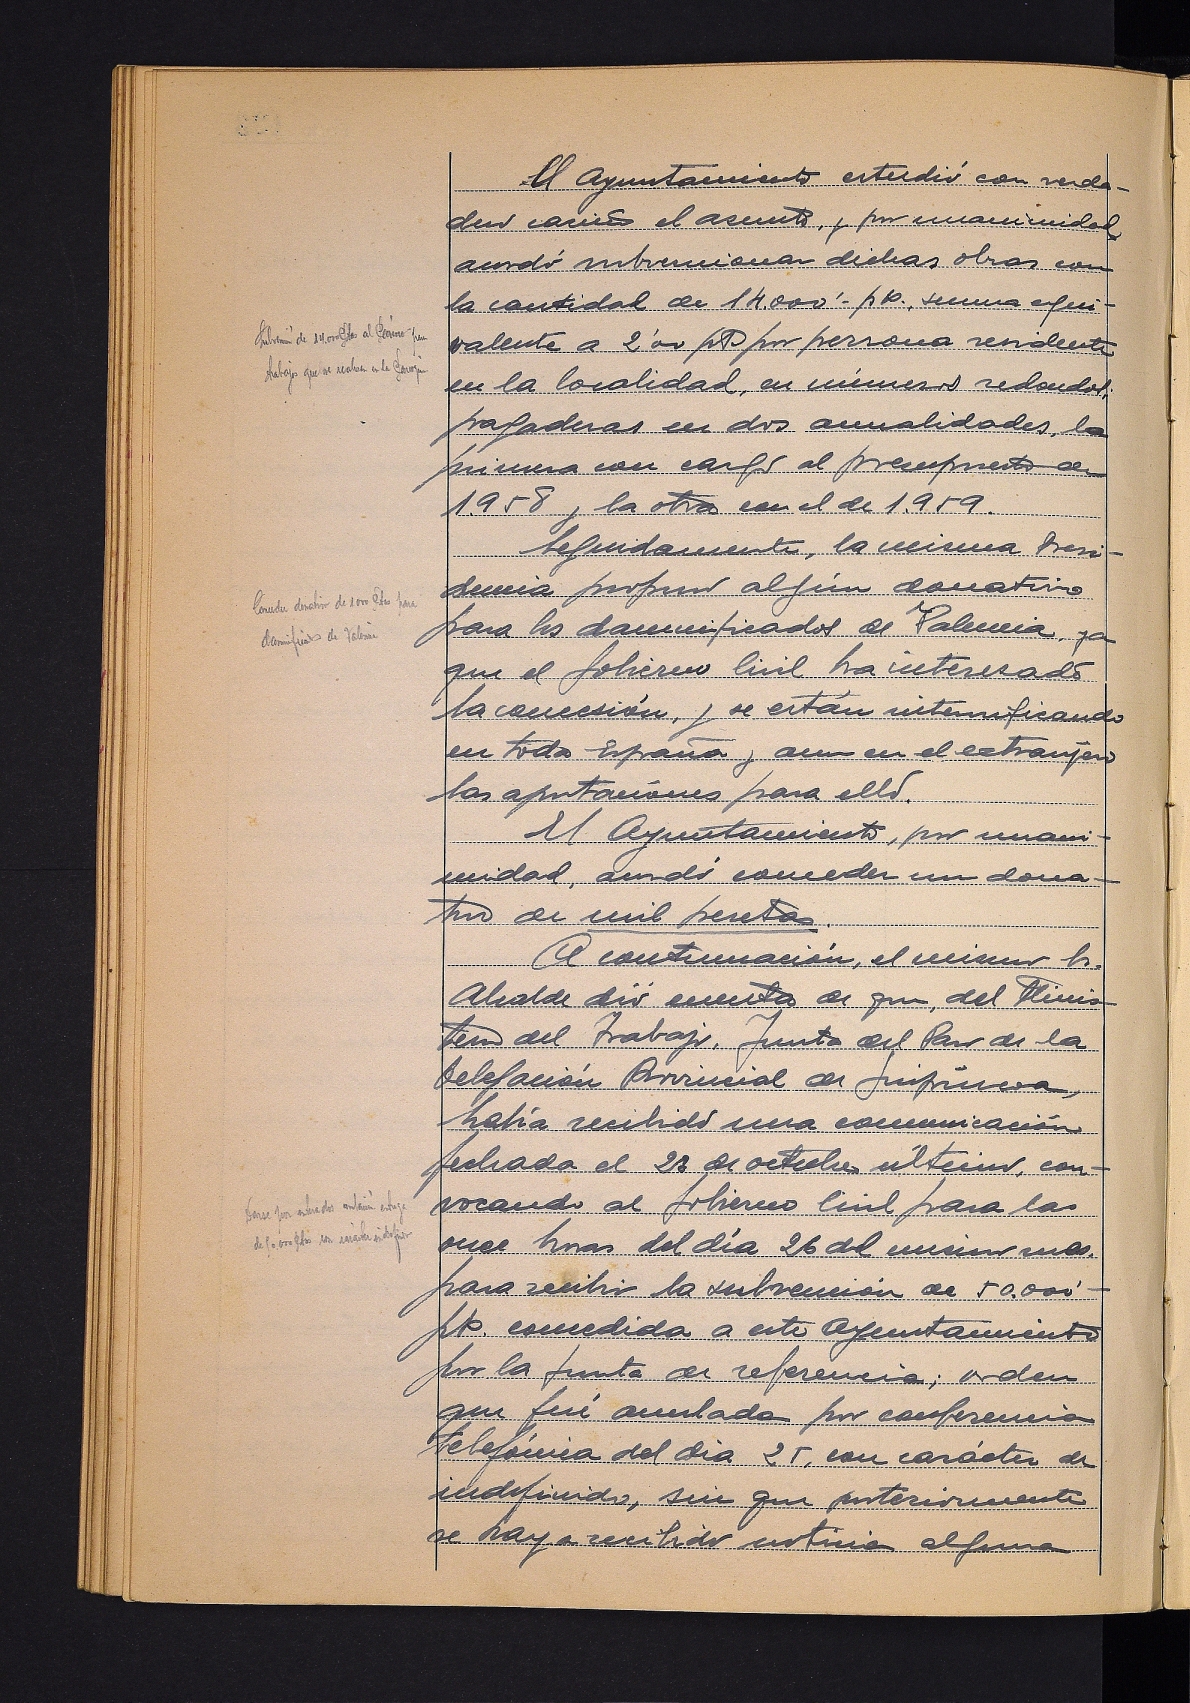 El Ayuntamiento estudió con verda-
dero cariño el asunto, y por unanimidad
acordó subvencionar dichas obras con
la cantidad de 14.000'- pts., suma equi-
valente a 2'00 pts por persona residente
en la localidad, en números redondos,
pagaderas en dos anualidades, la
primera con cargo al presupuesto de
1.958 y la otra con el de 1.959.
Seguidamente, la misma Presi-
dencia propuso algún donativo
para los damnificados de Valencia, ya
que el Gobierno Civil ha interesado
la concesión, y se están intensificando
en toda España y aun en el extranjero
las aportaciones para ello.
El Ayuntamiento, por unani-
midad, acordó conceder un dona-
tivo de mil pesetas.
A continuación, el mismo Sr.
Alcalde dió cuenta de que, del Minis-
terio del Trabajo, Junta del Paro de la
Delegación Provincial de Guipúzcoa,
había recibido una comunicación
fechada el 23 de octubre último, con-
vocando al Gobierno Civil para las
once horas del día 26 del mismo mes,
para recibir la subvención de 50.000'-
pts. concedida a este Ayuntamiento
por la Junta de referencia; orden
que fué anulada por conferencia
telefónica del día 25, con carácter de
indefinido, sin que posteriormente
se haya recibido noticia alguna
Subvención de 14.000 Ptas al
trabajos que se realizan en la
Conceder donativo de 1000 Ptas para
damnificados de Valencia
Darse por enterados
de 50.000 Ptas con carácter indefinido